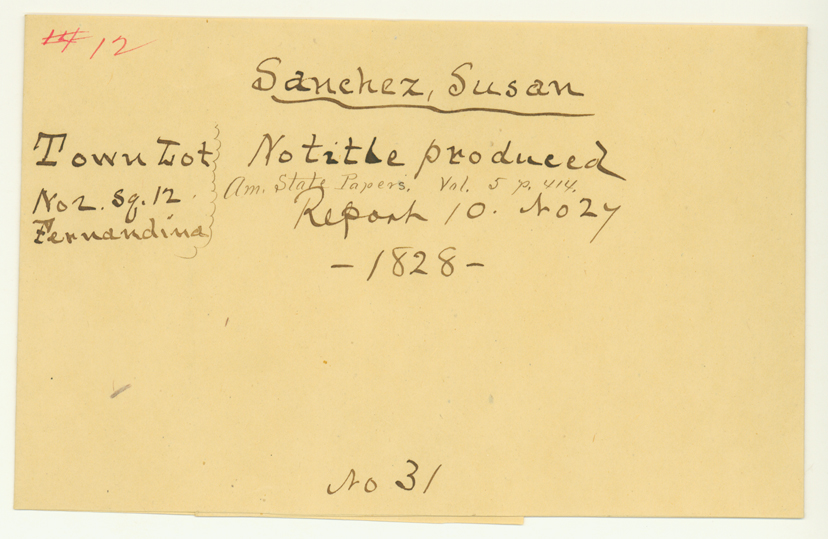 # 12
Sanchez, Susan
Town Lot
No 2. Sq. 12.
Fernandina
No title produced
Am. State Papers, Vol. 5 p. 414.
Report 10. No 27
- 1828 -
No 31